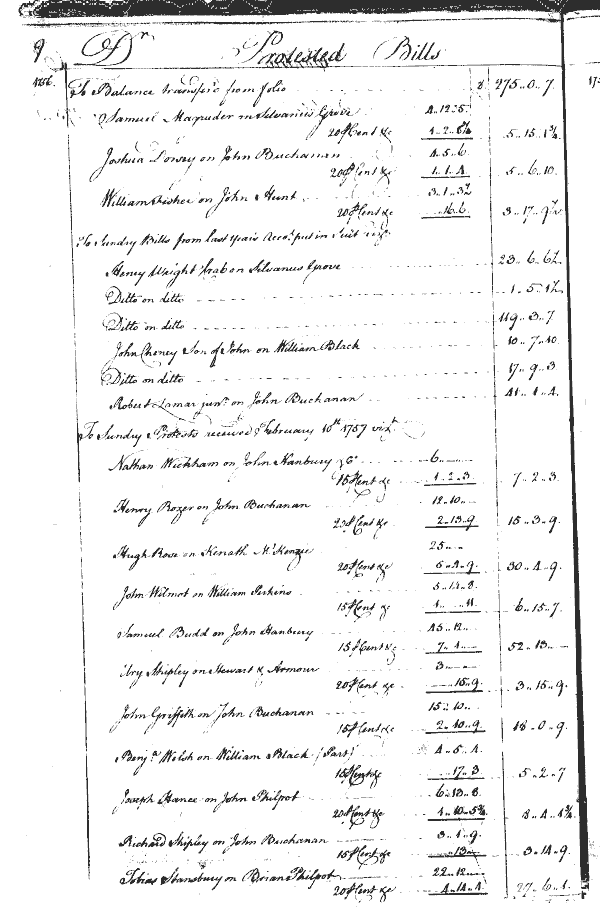 9 Dr Protested Bills
1756. To Balance transfer'd from folio 8 275..0..7.
Samuel Magruder on Silvanus Grove 4..12..5.
20 ⅌ Cent &c 1..2..8¾ 5..15..1¾
Joshua Dowry on John Buchanan 4..5..6.
20 ⅌ Cent &c 1..1..4 5..6..10.
William Fisher on John Hunt 3..1..3½
20 ⅌ Cent &c ..16..6. 3..17..9½
To Sundry Bills from last years Acco.t put in Suit viz.t
Henry Wright Crab on Silvanus Grove 23..6..6½
Ditto on ditto 1..5..1½
Ditto on ditto 119..3..7
John Cheney Son of John on William Black 10..7..10.
Ditto on ditto 17..9..3
Robert Lamar jun.r on John Buchanan 41..1..4.
To Sundry Protests received February 10th 1757 viz.t
Nathan Wickham on John Hanbury & Co 6..
15 ⅌ Cent &c 1..2..3. 7..2..3.
Henry Rozer on John Buchanan 12..10..
20 ⅌ Cent &c 2..13..9 15..3..9.
Hugh Rose on Kenath McKenzie 25..
20 ⅌ Cent &c 5..4..9. 30..4..9.
John Wilmot on William Perkins 5..14..8.
15 ⅌ Cent &c 1....11. 6..15..7.
Samuel Budd on John Hanbury 45..12..
15 ⅌ Cent &c 7..1.. 52..13..
Ury Shipley on Stewart & Armour 3..
20 ⅌ Cent &c ..15..9. 3..15..9.
John Griffith on John Buchanan 15..10..
15 ⅌ Cent &c 2..10..9 18..0..9.
Benj.a Welsh on William Black (Part) 4..5..4.
15 ⅌ Cent &c ..17..3 5..2..7
Joseph Hance on John Philpot 6..13..8.
20 ⅌ Cent &c 1..10..5¾ 8..4..1¾
Richard Shipley on John Buchanan 3..1..9.
15 ⅌ Cent &c ..13.. 3..14..9.
Tobias Stansbury on Brian Philpot 22..12..
20 ⅌ Cent &c 4..14..4. 27..6..4.